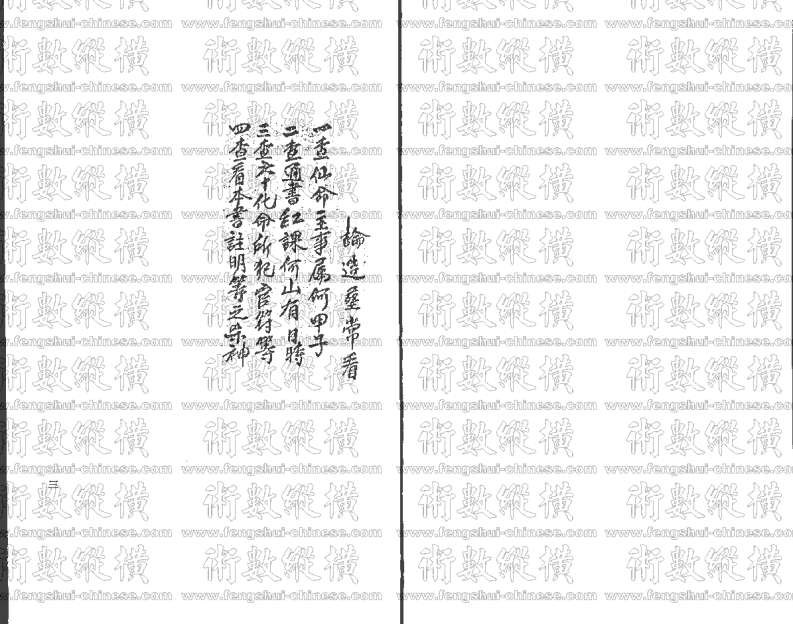 論造葬常看
一查仙命主事属何甲子
二查通書紅課何山有日時
三查六十化命所犯官符等
四查看本書註明等之柴神
三
術數縱橫
www.fengshui-chinese.com